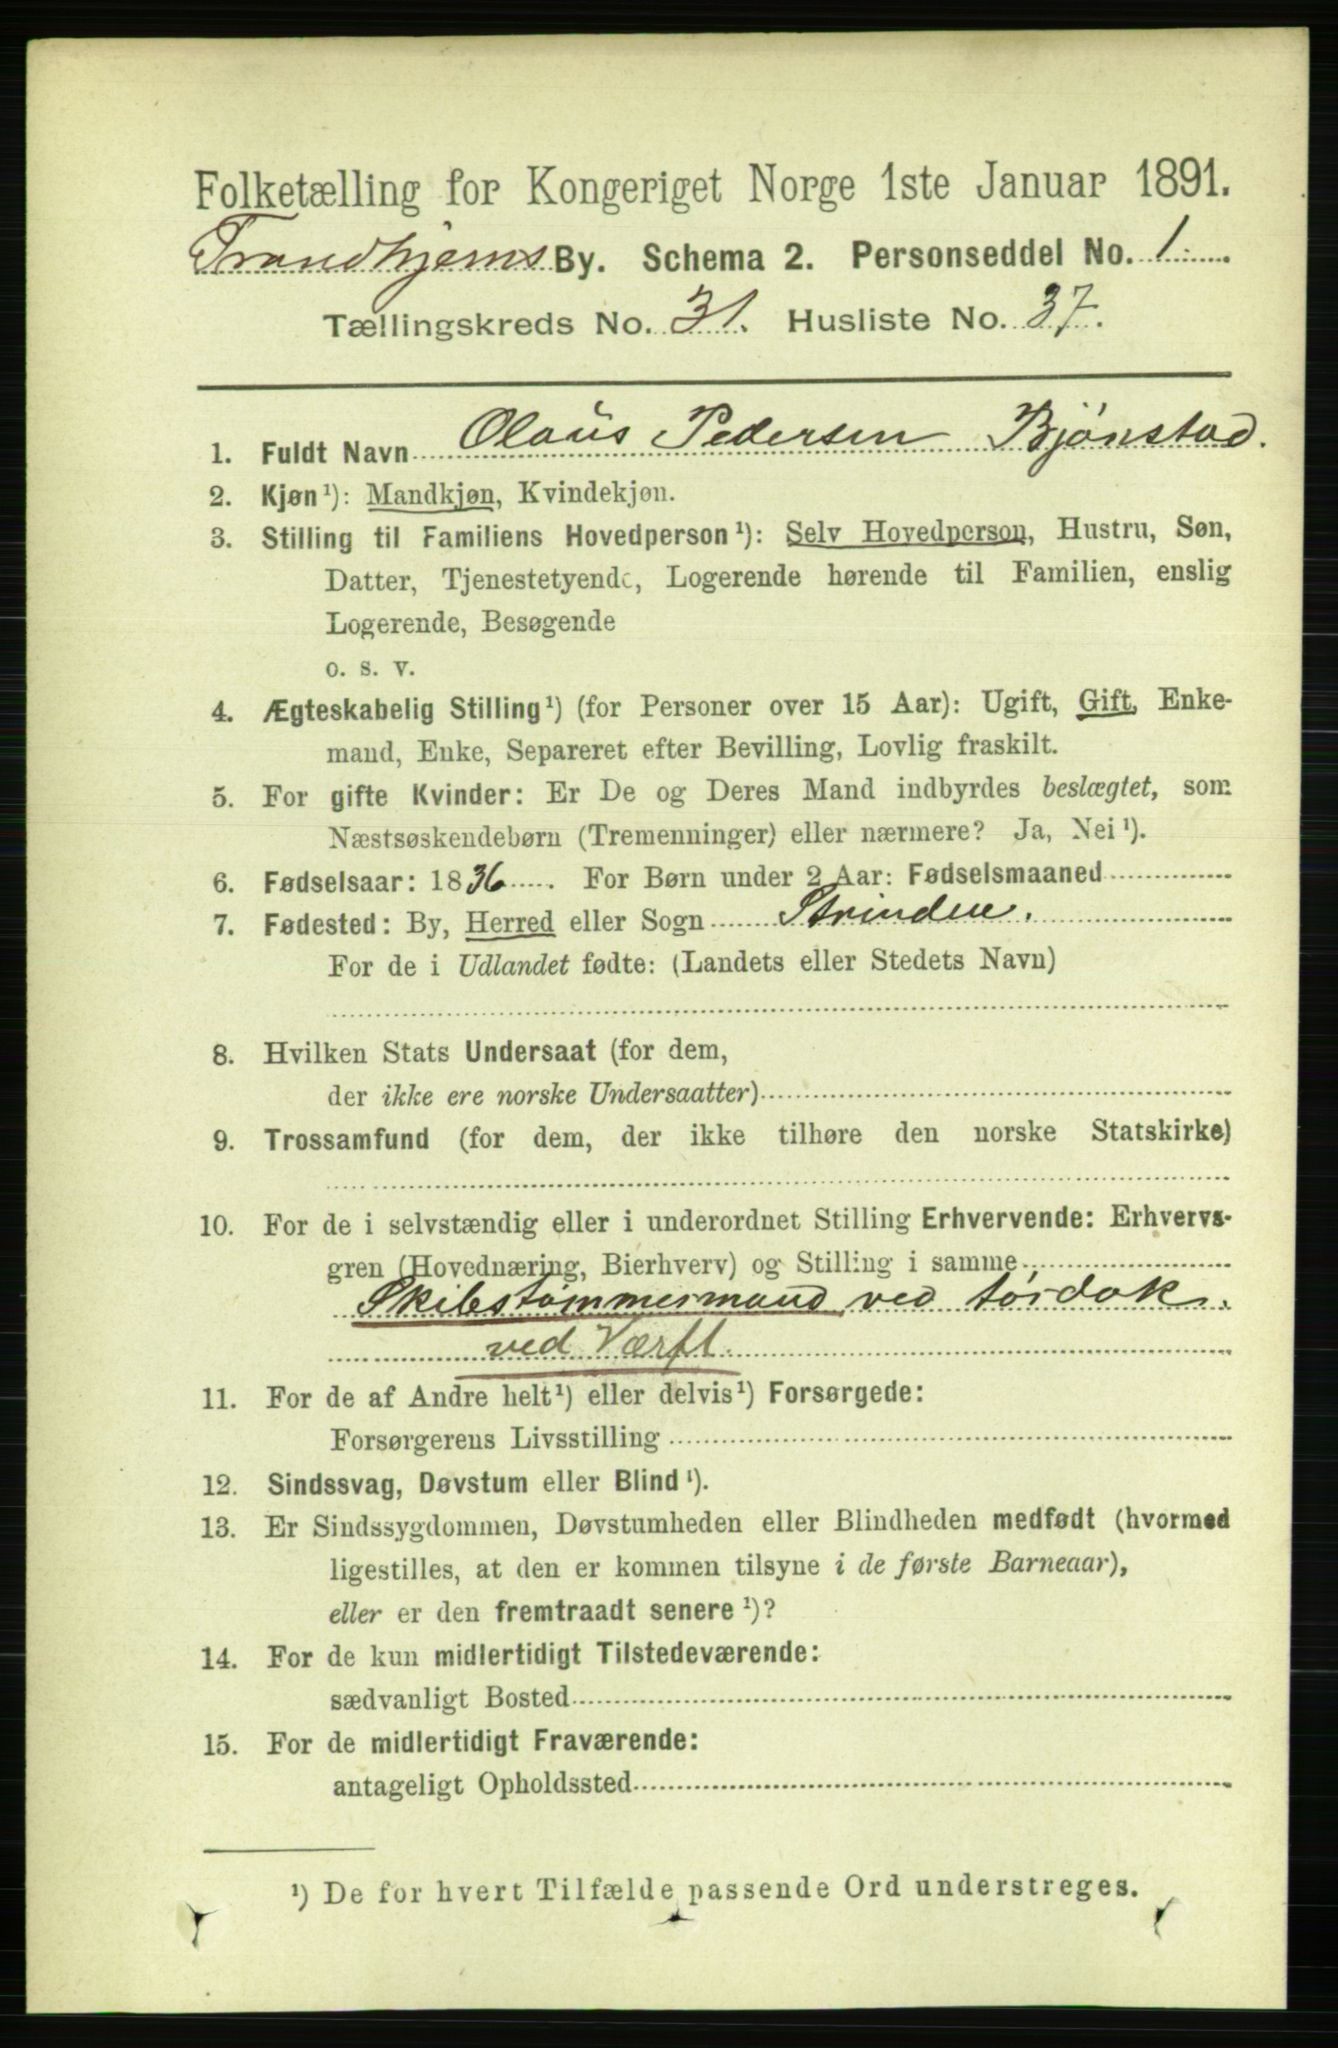 Folketælling for Kongeriget Norge 1ste Januar 1891.
Trondhjems By. Schema 2. Personseddel No. 1.
Tællingskreds No. 31. Husliste No. 37.
1. Fuldt Navn Olaus Pedersen Bjønstad.
2. Kjøn¹): Mandkjøn, Kvindekjøn.
3. Stilling til Familiens Hovedperson¹): Selv Hovedperson, Hustru, Søn,
Datter, Tjenestetyende, Logerende hørende til Familien, enslig
Logerende, Besøgende
o. s. v.
4. Ægteskabelig Stilling¹) (for Personer over 15 Aar): Ugift, Gift, Enke-
mand, Enke, Separeret efter Bevilling, Lovlig fraskilt.
5. For gifte Kvinder: Er De og Deres Mand indbyrdes beslægtet, som
Næstsøskendebørn (Tremenninger) eller nærmere? Ja, Nei¹).
6. Fødselsaar: 1836. For Børn under 2 Aar: Fødselsmaaned
7. Fødested: By, Herred eller Sogn Strinden.
For de i Udlandet fødte: (Landets eller Stedets Navn)
8. Hvilken Stats Undersaat (for dem,
der ikke ere norske Undersaatter)
9. Trossamfund (for dem, der ikke tilhøre den norske Statskirke)
10. For de i selvstændig eller i underordnet Stilling Erhvervende: Erhvervs-
gren (Hovednæring, Bierhverv) og Stilling i samme
Skibstømmermand ved tørdok.
ved Værft.
11. For de af Andre helt¹) eller delvis¹) Forsørgede:
Forsørgerens Livsstilling
12. Sindssvag, Døvstum eller Blind¹).
13. Er Sindssygdommen, Døvstumheden eller Blindheden medfødt (hvormed
ligestilles, at den er kommen tilsyne i de første Barneaar),
eller er den fremtraadt senere¹)?
14. For de kun midlertidigt Tilstedeværende:
sædvanligt Bosted
15. For de midlertidigt Fraværende:
antageligt Opholdssted
¹) De for hvert Tilfælde passende Ord understreges.